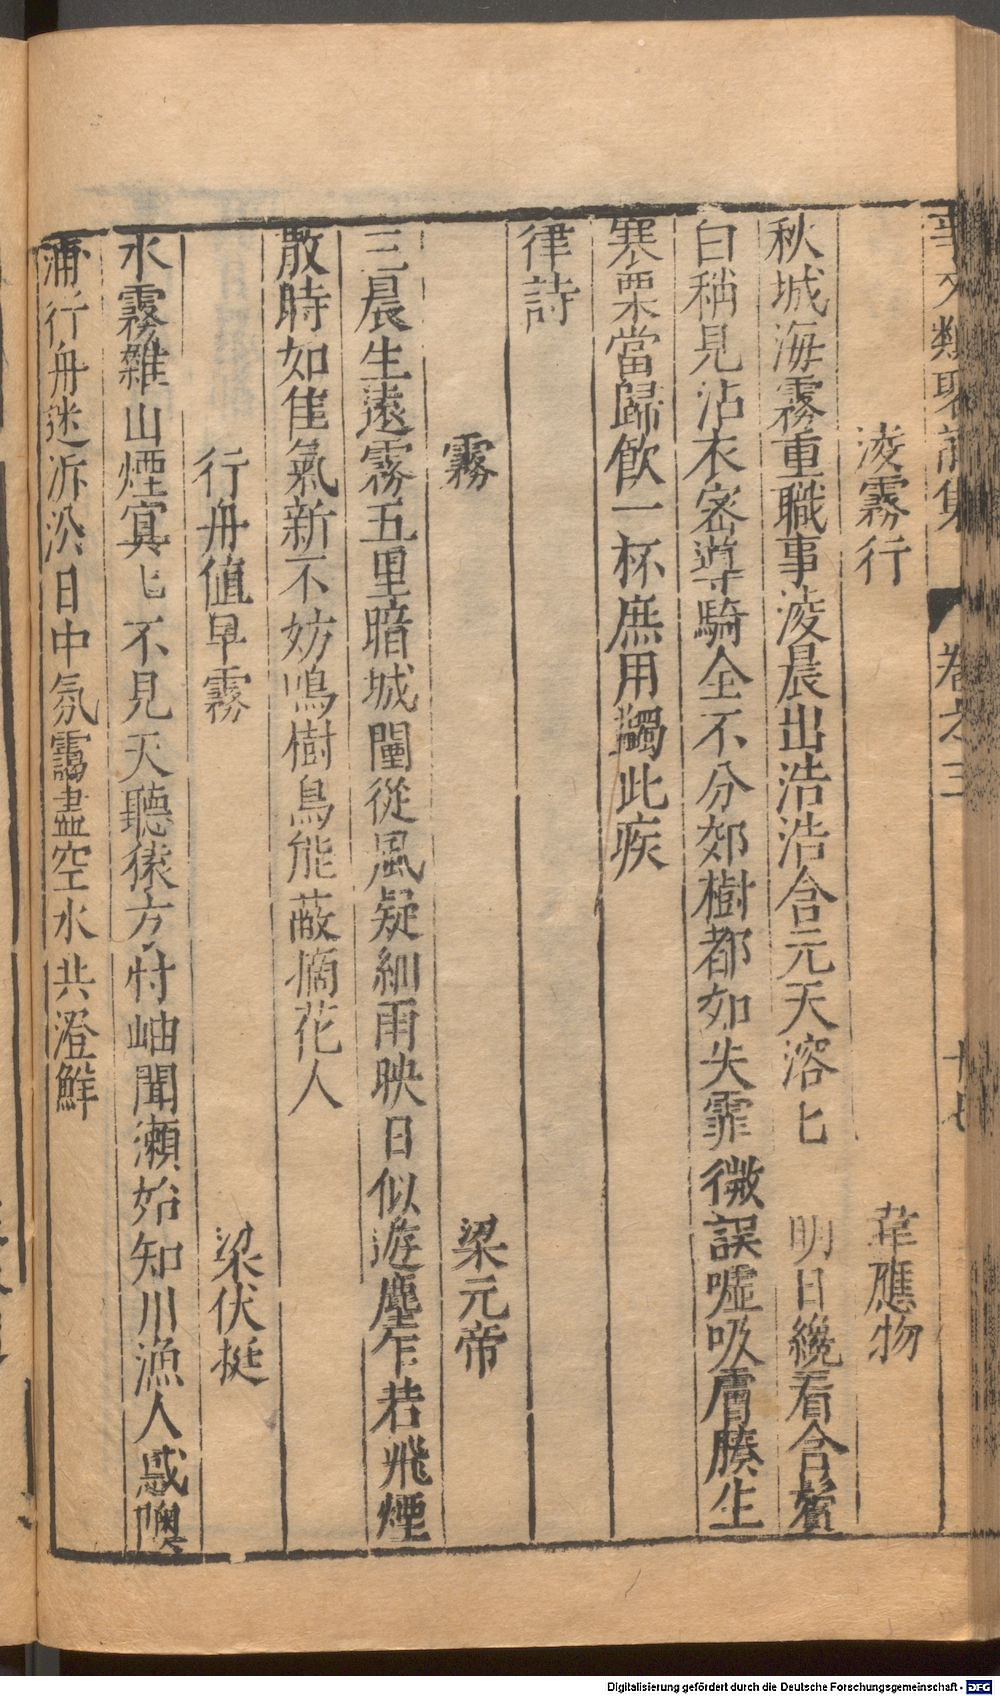 事文類聚前集　卷之三　十七
淩霧行　韋應物
秋城海霧重職事淩晨出浩浩含元天溶匕　明日纔看含鬢
白稱見沾衣密導騎全不分郊樹都如失霏微誤噓吸膚腠生
寒栗當歸飲一杯庶用蠲此疾
律詩
霧　梁元帝
三晨生遠霧五里暗城闉從風疑細雨映日似遊塵乍若飛煙
散時如佳氣新不妨鳴樹鳥能蔽摘花人
行舟值早霧　梁伏挺
水霧雜山煙寘匕不見天聽猿方忖岫聞瀨始知川漁人惑隩
浦行舟迷泝㳂日中氛靄盡空水共澄鮮
Digitalisierung gefördert durch die Deutsche Forschungsgemeinschaft - DFG